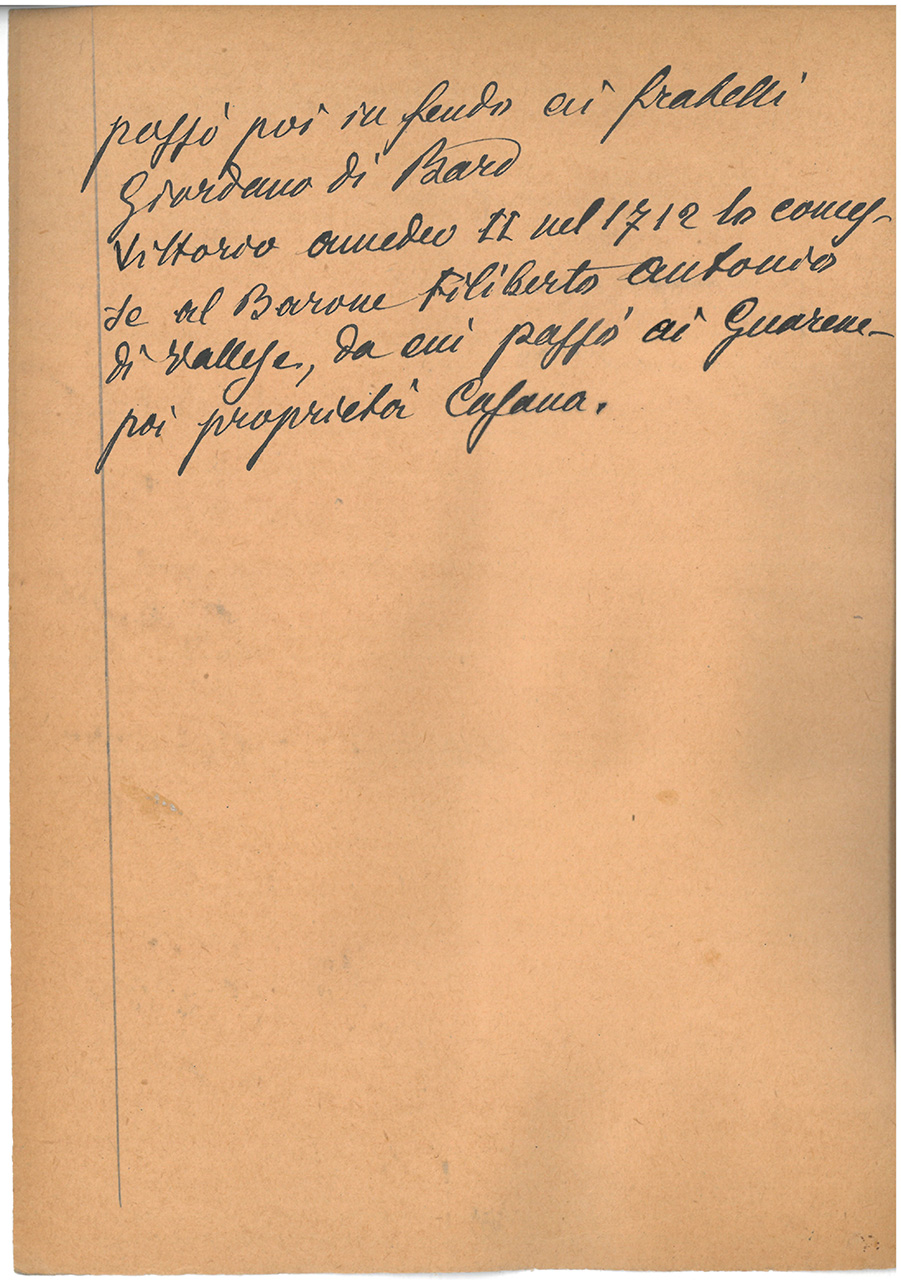 passò poi in feudo ai fratelli
Giordano di Bard
Vittorio amedeo II nel 1712 lo conces-
se al Barone Filiberto Antonio
di Vallese, da cui passò ai Guarene-
poi proprietà Casana.